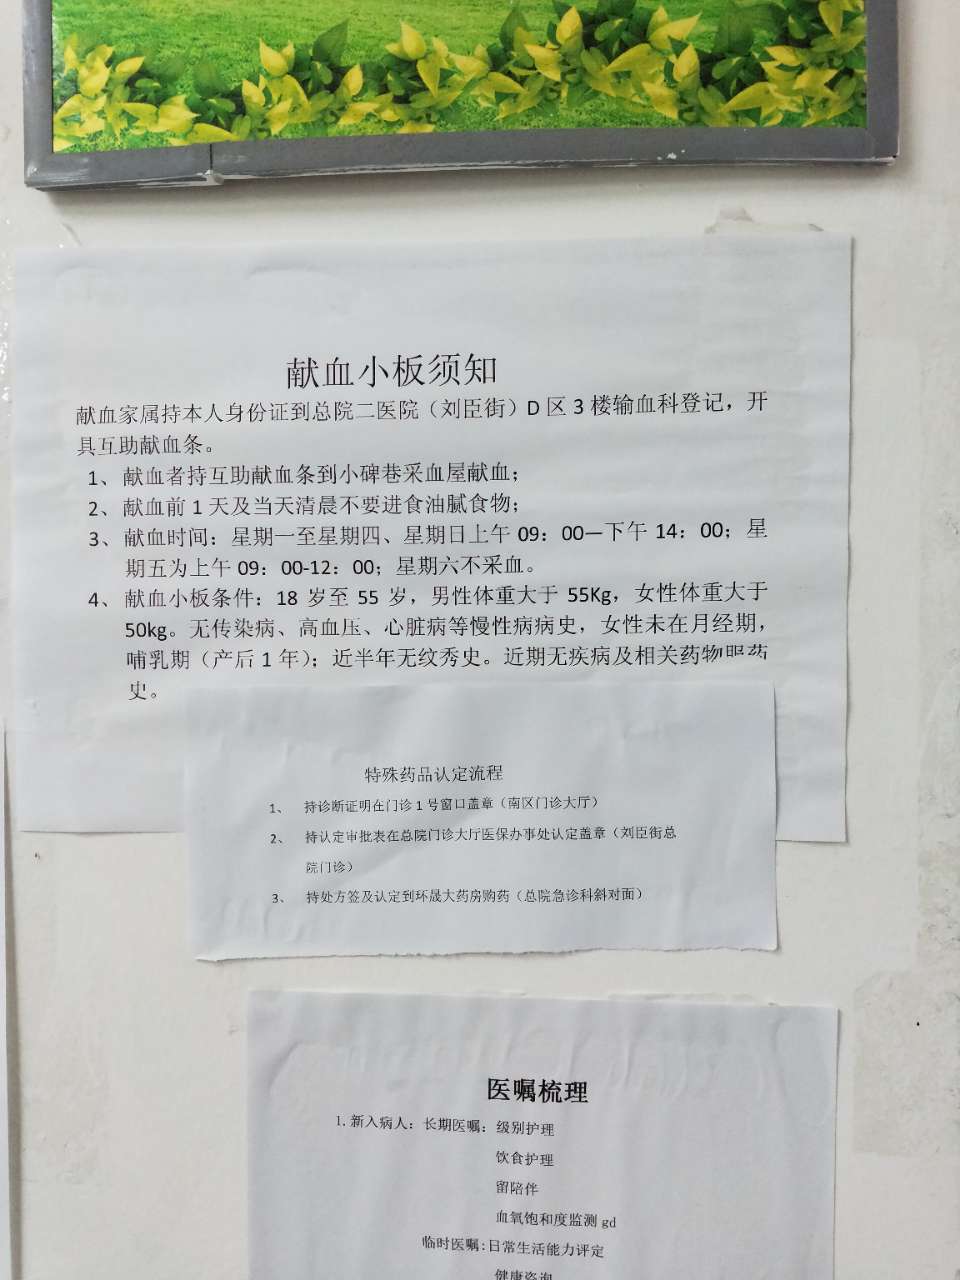 献血小板须知
献血家属持本人身份证到总院二医院（刘臣街）D 区 3 楼输血科登记，开
具互助献血条。
1、献血者持互助献血条到小碑巷采血屋献血；
2、献血前 1 天及当天清晨不要进食油腻食物；
3、献血时间：星期一至星期四、星期日上午 09：00—下午 14：00；星
期五为上午 09：00-12：00；星期六不采血。
4、献血小板条件：18 岁至 55 岁，男性体重大于 55Kg，女性体重大于
50kg。无传染病、高血压、心脏病等慢性病病史，女性未在月经期，
哺乳期（产后 1 年）；近半年无纹秀史。近期无疾病及相关药物服药
史。
特殊药品认定流程
1、 持诊断证明在门诊 1 号窗口盖章（南区门诊大厅）
2、 持认定审批表在总院门诊大厅医保办事处认定盖章（刘臣街总
院门诊）
3、 持处方签及认定到环晟大药房购药（总院急诊科斜对面）
医嘱梳理
1. 新入病人：长期医嘱：级别护理
饮食护理
留陪伴
血氧饱和度监测 gd
临时医嘱：日常生活能力评定
健康咨询